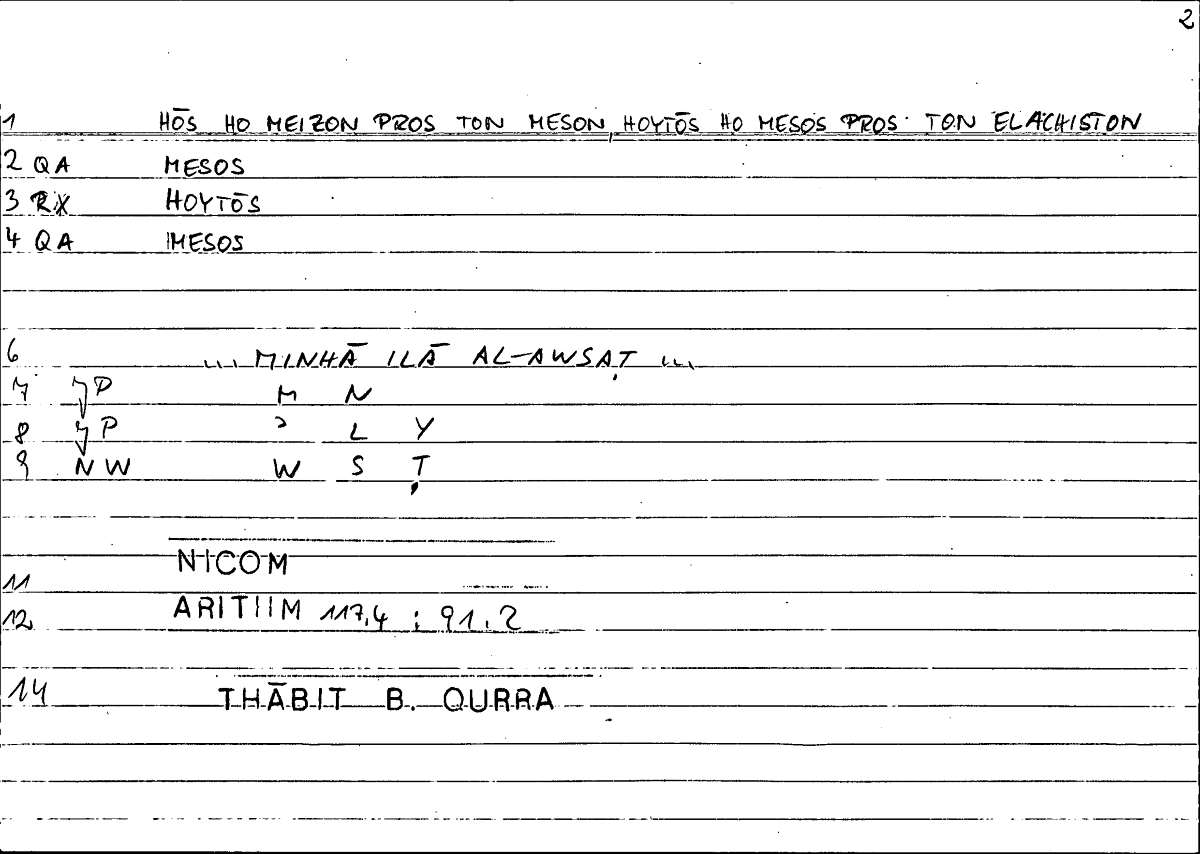 2
1 HŌS HO MEIZON PROS TON MESON, HOYTŌS HO MESOS PROS TON ELACHISTON
2 QA MESOS
3 RX HOYTŌS
4 QA MESOS
6 ... MINHĀ ILĀ AL-AWSAṬ ...
7 P M N
8 P ʾ L Y
9 NW W S Ṭ
NICOM
11
12 ARITHM 117,4 ; 91,2
14 THĀBIT B. QURRA